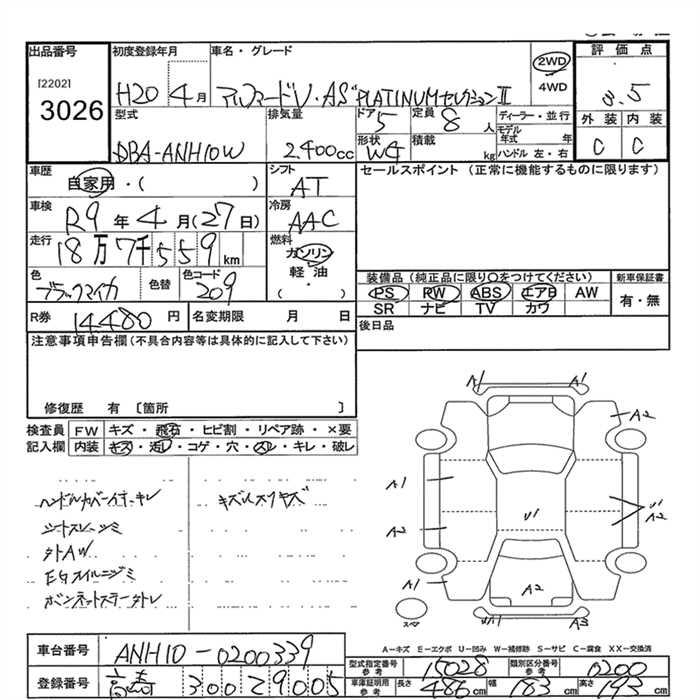 出品番号
[2202]
3026
初度登録年月
H20 4月
車名・グレード
アルファードV・AS PLATINUMセレクションⅡ
2WD
4WD
評価点
3.5
外装 内装
C C
型式
DBA-ANH10W
排気量
2400cc
ドア
5
定員
8人
形状
WG
積載
kg
ディーラー・並行
モデル年式 年
ハンドル 左・右
車歴
自家用・( )
シフト
AT
セールスポイント(正常に機能するものに限ります)
車検
R9年4月(27日)
冷房
AAC
走行
18万7千559km
燃料
ガソリン
軽油
( ・ )
色
ブラックマイカ
色替
色コード
209
装備品(純正品に限り○をつけてください)
PS PW ABS エアB AW
SR ナビ TV カワ
新車保証書
有・無
R券 14480円
名変期限 月 日
後日品
注意事項申告欄(不具合内容等は具体的に記入して下さい)
修復歴 有 〔箇所 〕
検査員記入欄
FW キズ・飛石・ヒビ割・リペア跡・×要
内装 キズ・汚レ・コゲ・穴・スレ・キレ・破レ
ハンドルカバー
シートスレ
外AW
A1 A1
A2
A1
V1
A2
A2
A1
A2
A3
スペア
A-キズ E-エクボ U-凹み W-補修跡 S-サビ C-腐食 XX-交換済
車台番号 ANH10-0200339
登録番号 300 29005
型式指定番号 参考 15028
類別区分番号 参考 0200
車庫証明用 参考 長さ 486cm 幅 183cm 高さ 193cm